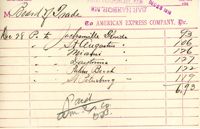 M Board of Trade
To AMERICAN EXPRESS COMPANY, Dr.
Nov 28 P. to Jacksonville Florida 93
" St Augustine " 1 06
" Miami " 1 26
" Daytona " 1 27
" Palm Beach " 1 22
" St Petersburg " 1 19
6.93
Paid
Am Ex Co